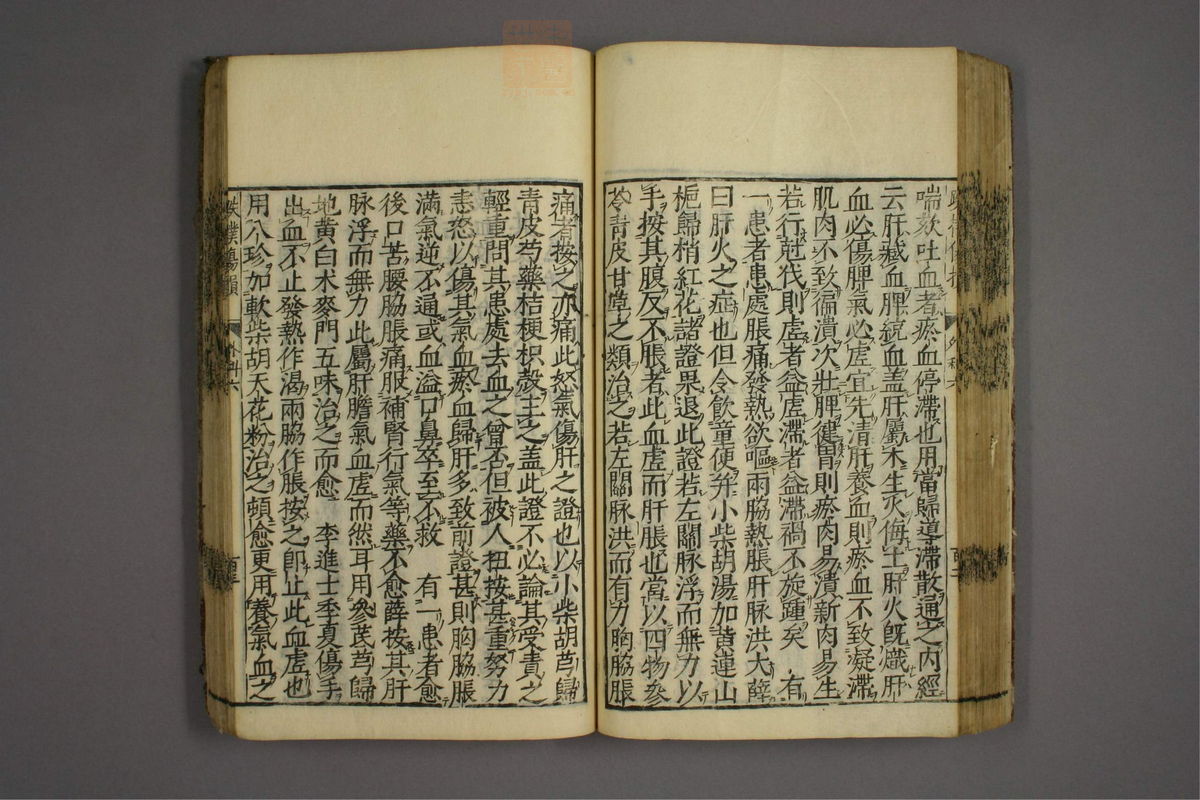 喘欬吐血者瘀血停滯也用當歸導滯散通之内經
云肝藏血脾統血盖肝屬木生火侮土肝火既熾肝
血必傷脾氣必虛宜先清肝養血則瘀血不致凝滯
肌肉不致徧潰次壯脾健胃則瘀肉易潰新肉易生
若行尅伐則虛者益虛滯者益滯禍不旋踵矣　有
一患者患處脹痛發熱欲嘔兩脇熱脹肝脉洪大薛
曰肝火之症也但令飲童便并小柴胡湯加黄連山
梔歸梢紅花諸證果退此證若左關脉浮而無力以
手按其腹反不脹者此血虛而肝脹也當以四物參
苓青皮甘草之類治之若左關脉洪而有力胸脇脹
痛者按之亦痛此怒氣傷肝之證也以小柴胡芎歸
青皮芍藥桔梗枳殼主之盖此證不必論其受責之
輕重問其患處去血之曾否但被人扭按甚重努力
恚怒以傷其氣血瘀血歸肝多致前證甚則胸脇脹
滿氣逆不通或血溢口鼻卒至不救　有一患者愈
後口苦腰脇脹痛服補腎行氣等藥不愈薛按其肝
脉浮而無力此屬肝膽氣血虛而然耳用參芪芎歸
地黄白术麥門五味治之而愈　李進士季夏傷手
出血不止發熱作渴兩脇作脹按之卽止此血虛也
用八珍加軟柴胡天花粉治之頓愈更用養氣血之
跌撲傷損
外科六